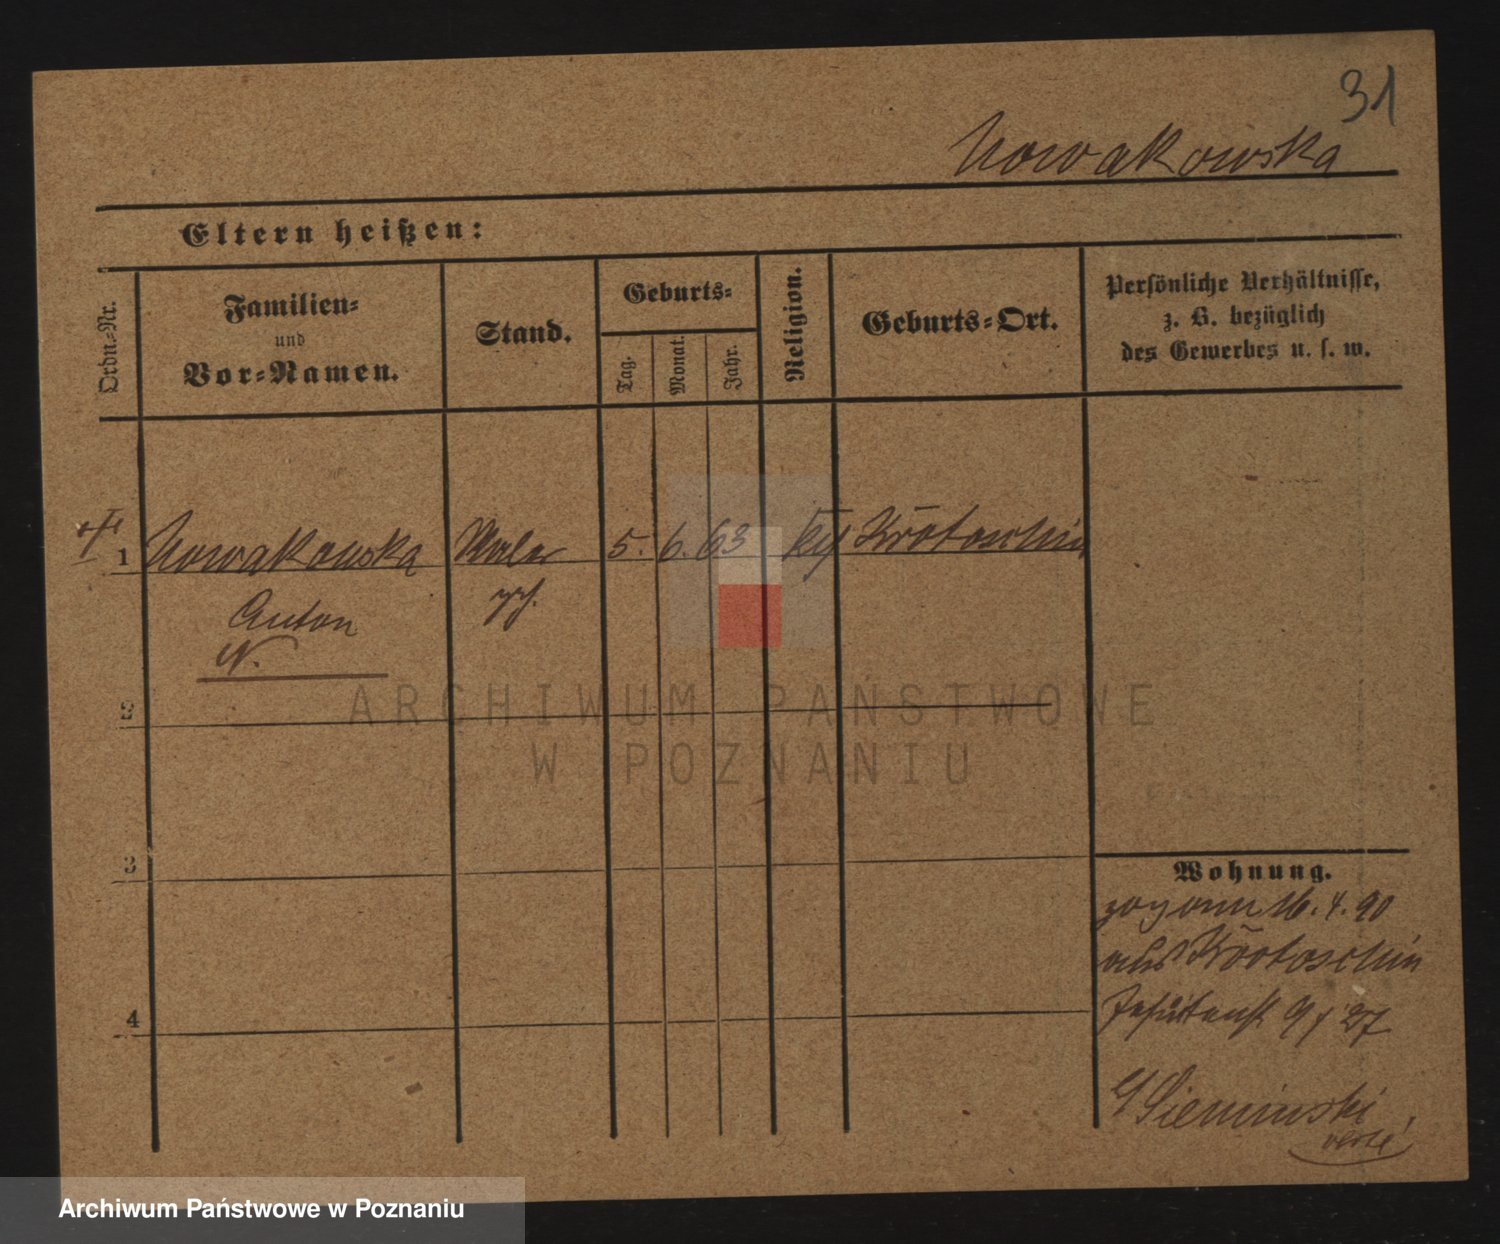 31
Nowakowska
Eltern heißen:
Ordn.-Nr.
Familien-
und
Vor-Namen.
Stand.
Geburts-
Tag.
Monat.
Jahr.
Religion.
Geburts-Ort.
Persönliche Verhältnisse,
z. B. bezüglich
des Gewerbes u. s. w.
1 Nowakowska Maler 5. 6. 63 Krotoschin
Anton
N.
2
ARCHIWUM PAŃSTWOWE
W POZNANIU
3
Wohnung.
16. 4. 90
aus Krotoschin
4
Jesuitenstr
Sieminski
Archiwum Państwowe w Poznaniu